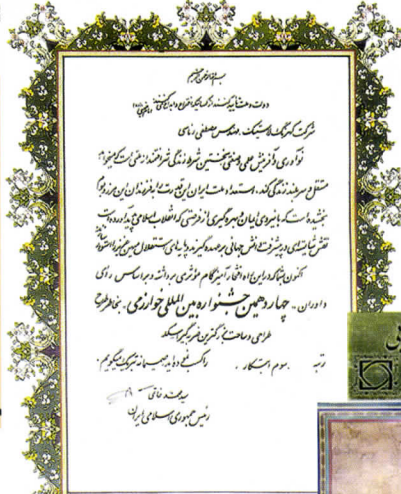 بسم الله الرحمن الرحیم
دولت و ملت باید پشتیبان
شرکت مهندس مصطفی
نوآوری و آفرینش علمی و فنی نخستین شرط زندگی شرافتمندانه ملتی است که می‌خواهد
مستقل و سربلند زندگی کند. استعداد ملت ایران این قدرت را به فرزندان این مرز و بوم
بخشیده است که با نیروی ایمان و بهره‌گیری از فرصتی که انقلاب اسلامی پدید آورده است
نقش شایسته‌ای در پیشرفت دانش جهانی بر عهده گیرند و پایه‌های استقلال میهن عزیز را استوار
اکنون شما که در این راه افتخارآمیز گام مؤثری برداشته و بر اساس رأی
داوران .. چهاردهمین جشنواره بین المللی خوارزمی . بخاطر طرح
طراحی و ساخت بزرگترین
رتبه سوم ابتکار . را کسب نموده‌اید صمیمانه تبریک میگویم .
سید محمد خاتمی
رئیس جمهوری اسلامی ایران